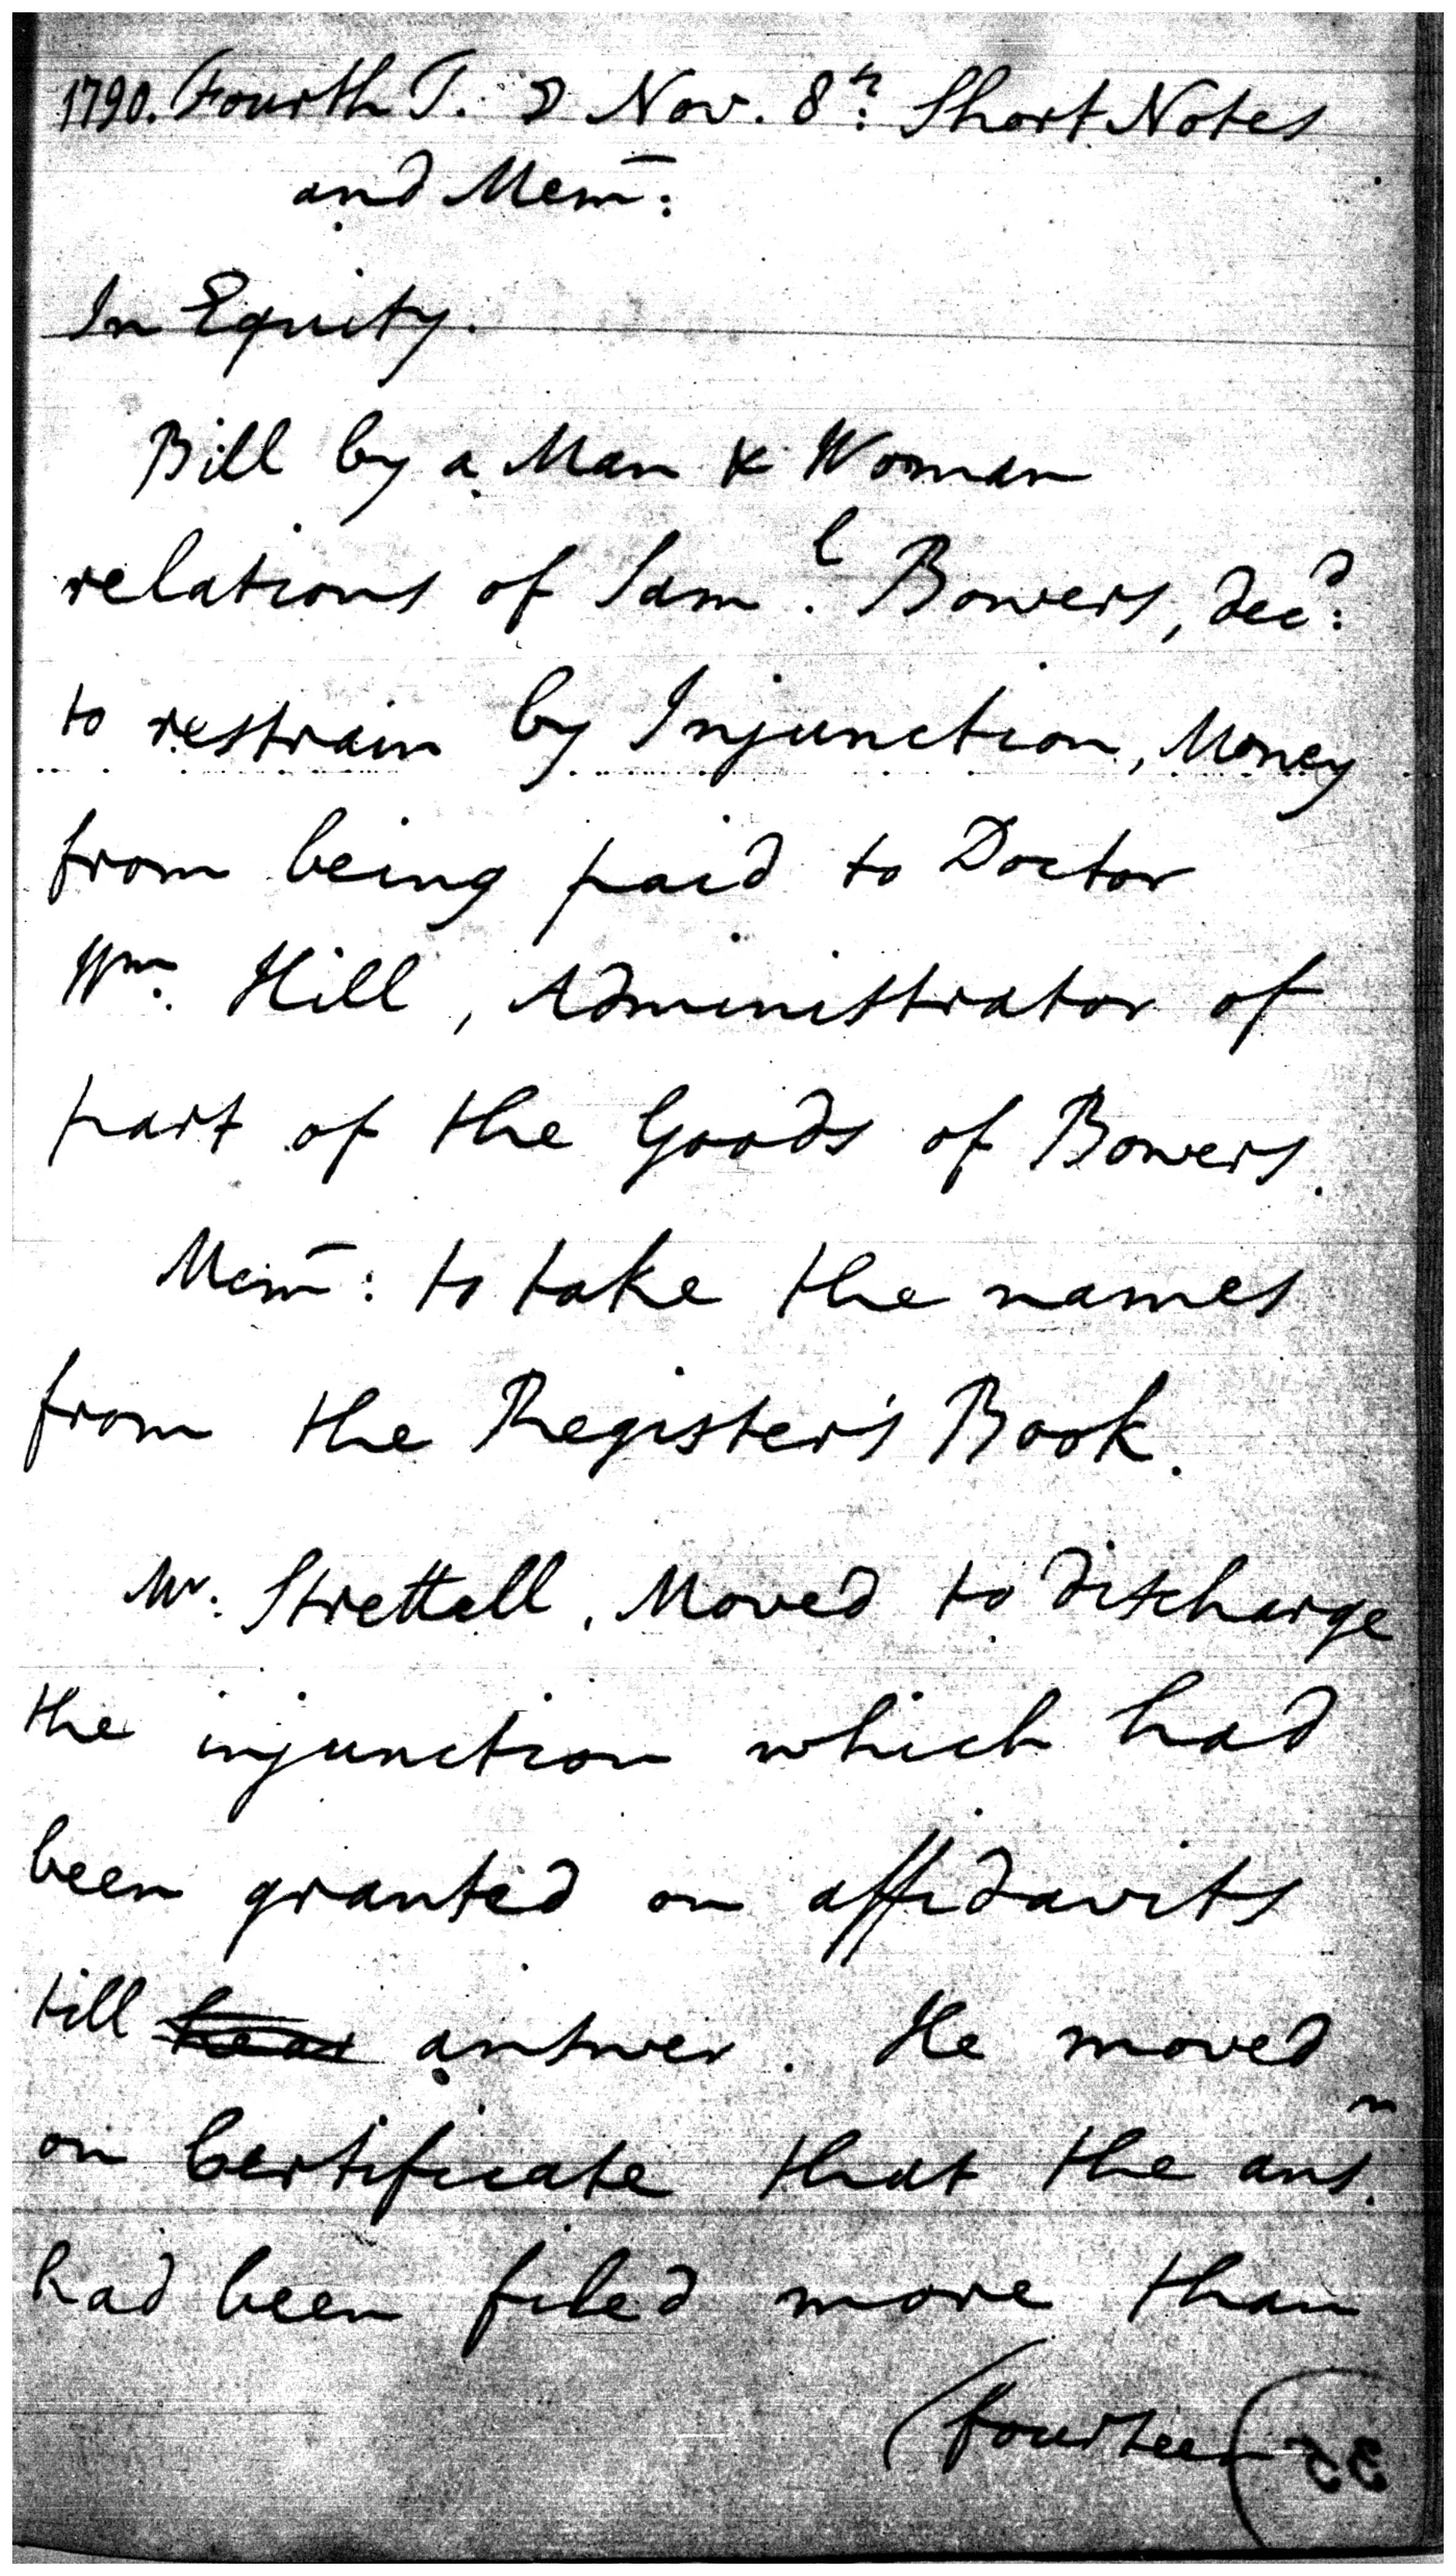 1790. Fourth T. ☽ Nov. 8th: Short Notes
and Mem̄:
In Equity.
Bill by a Man & Woman
relations of Saml. Bowers, decd:
to restrain by Injunction, Money
from being paid to Doctor
Wm. Hill, Administrator of
part of the Goods of Bowers.
Mem̄: to take the names
from the Register's Book.
Mr. Strettell. Moved to discharge
the injunction which had
been granted on affidavits
till answer. He moved
on Certificate that the ans.
had been filed more than
(fourteen